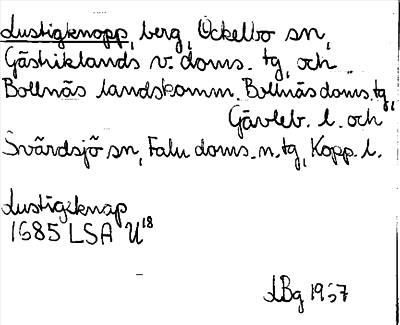 Lustigknopp, berg, Ockelbo sn,
Gästriklands v. doms. tg, och
Bollnäs landskomm. Bollnäs doms. tg,
Gävleb. l. och
Svärdsjö sn, Falu doms. n. tg, Kopp. l.
Lustigeknap
1685 LSA U¹⁸
LBg 1957